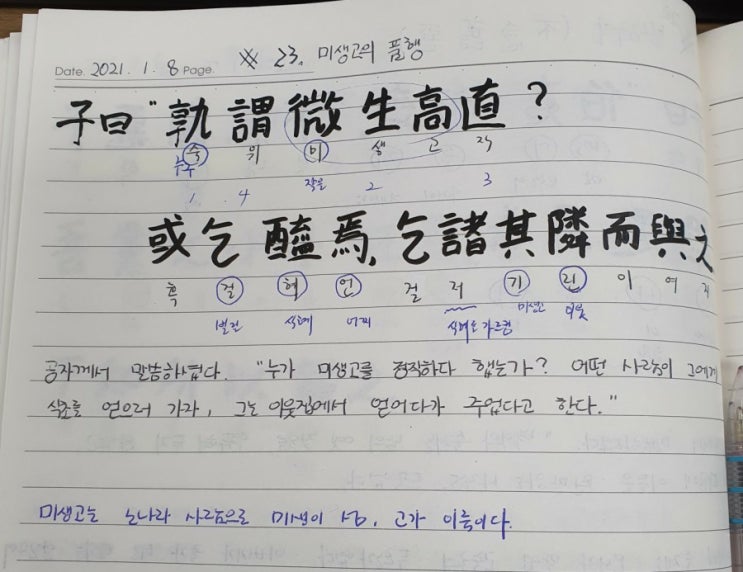 Date. 2021. 1. 8 Page. ※ 23. 미생고의 품행
子曰 "孰謂微生高直?
숙 위 미 생 고 직
누구 작을
1 4 2 3
或乞醯焉, 乞諸其隣而與之
혹 걸 혜 언 걸 저 기 린 이 여 지
빌건 식혜 어찌 식혜를 가르킴 미생고 이웃
공자께서 말씀하셨다. "누가 미생고를 정직하다 했는가? 어떤 사람이 그에게
식초를 얻으러 가자, 그는 이웃집에서 얻어다가 주었다고 한다."
미생고는 노나라 사람으로 미생이 성, 고가 이름이다.